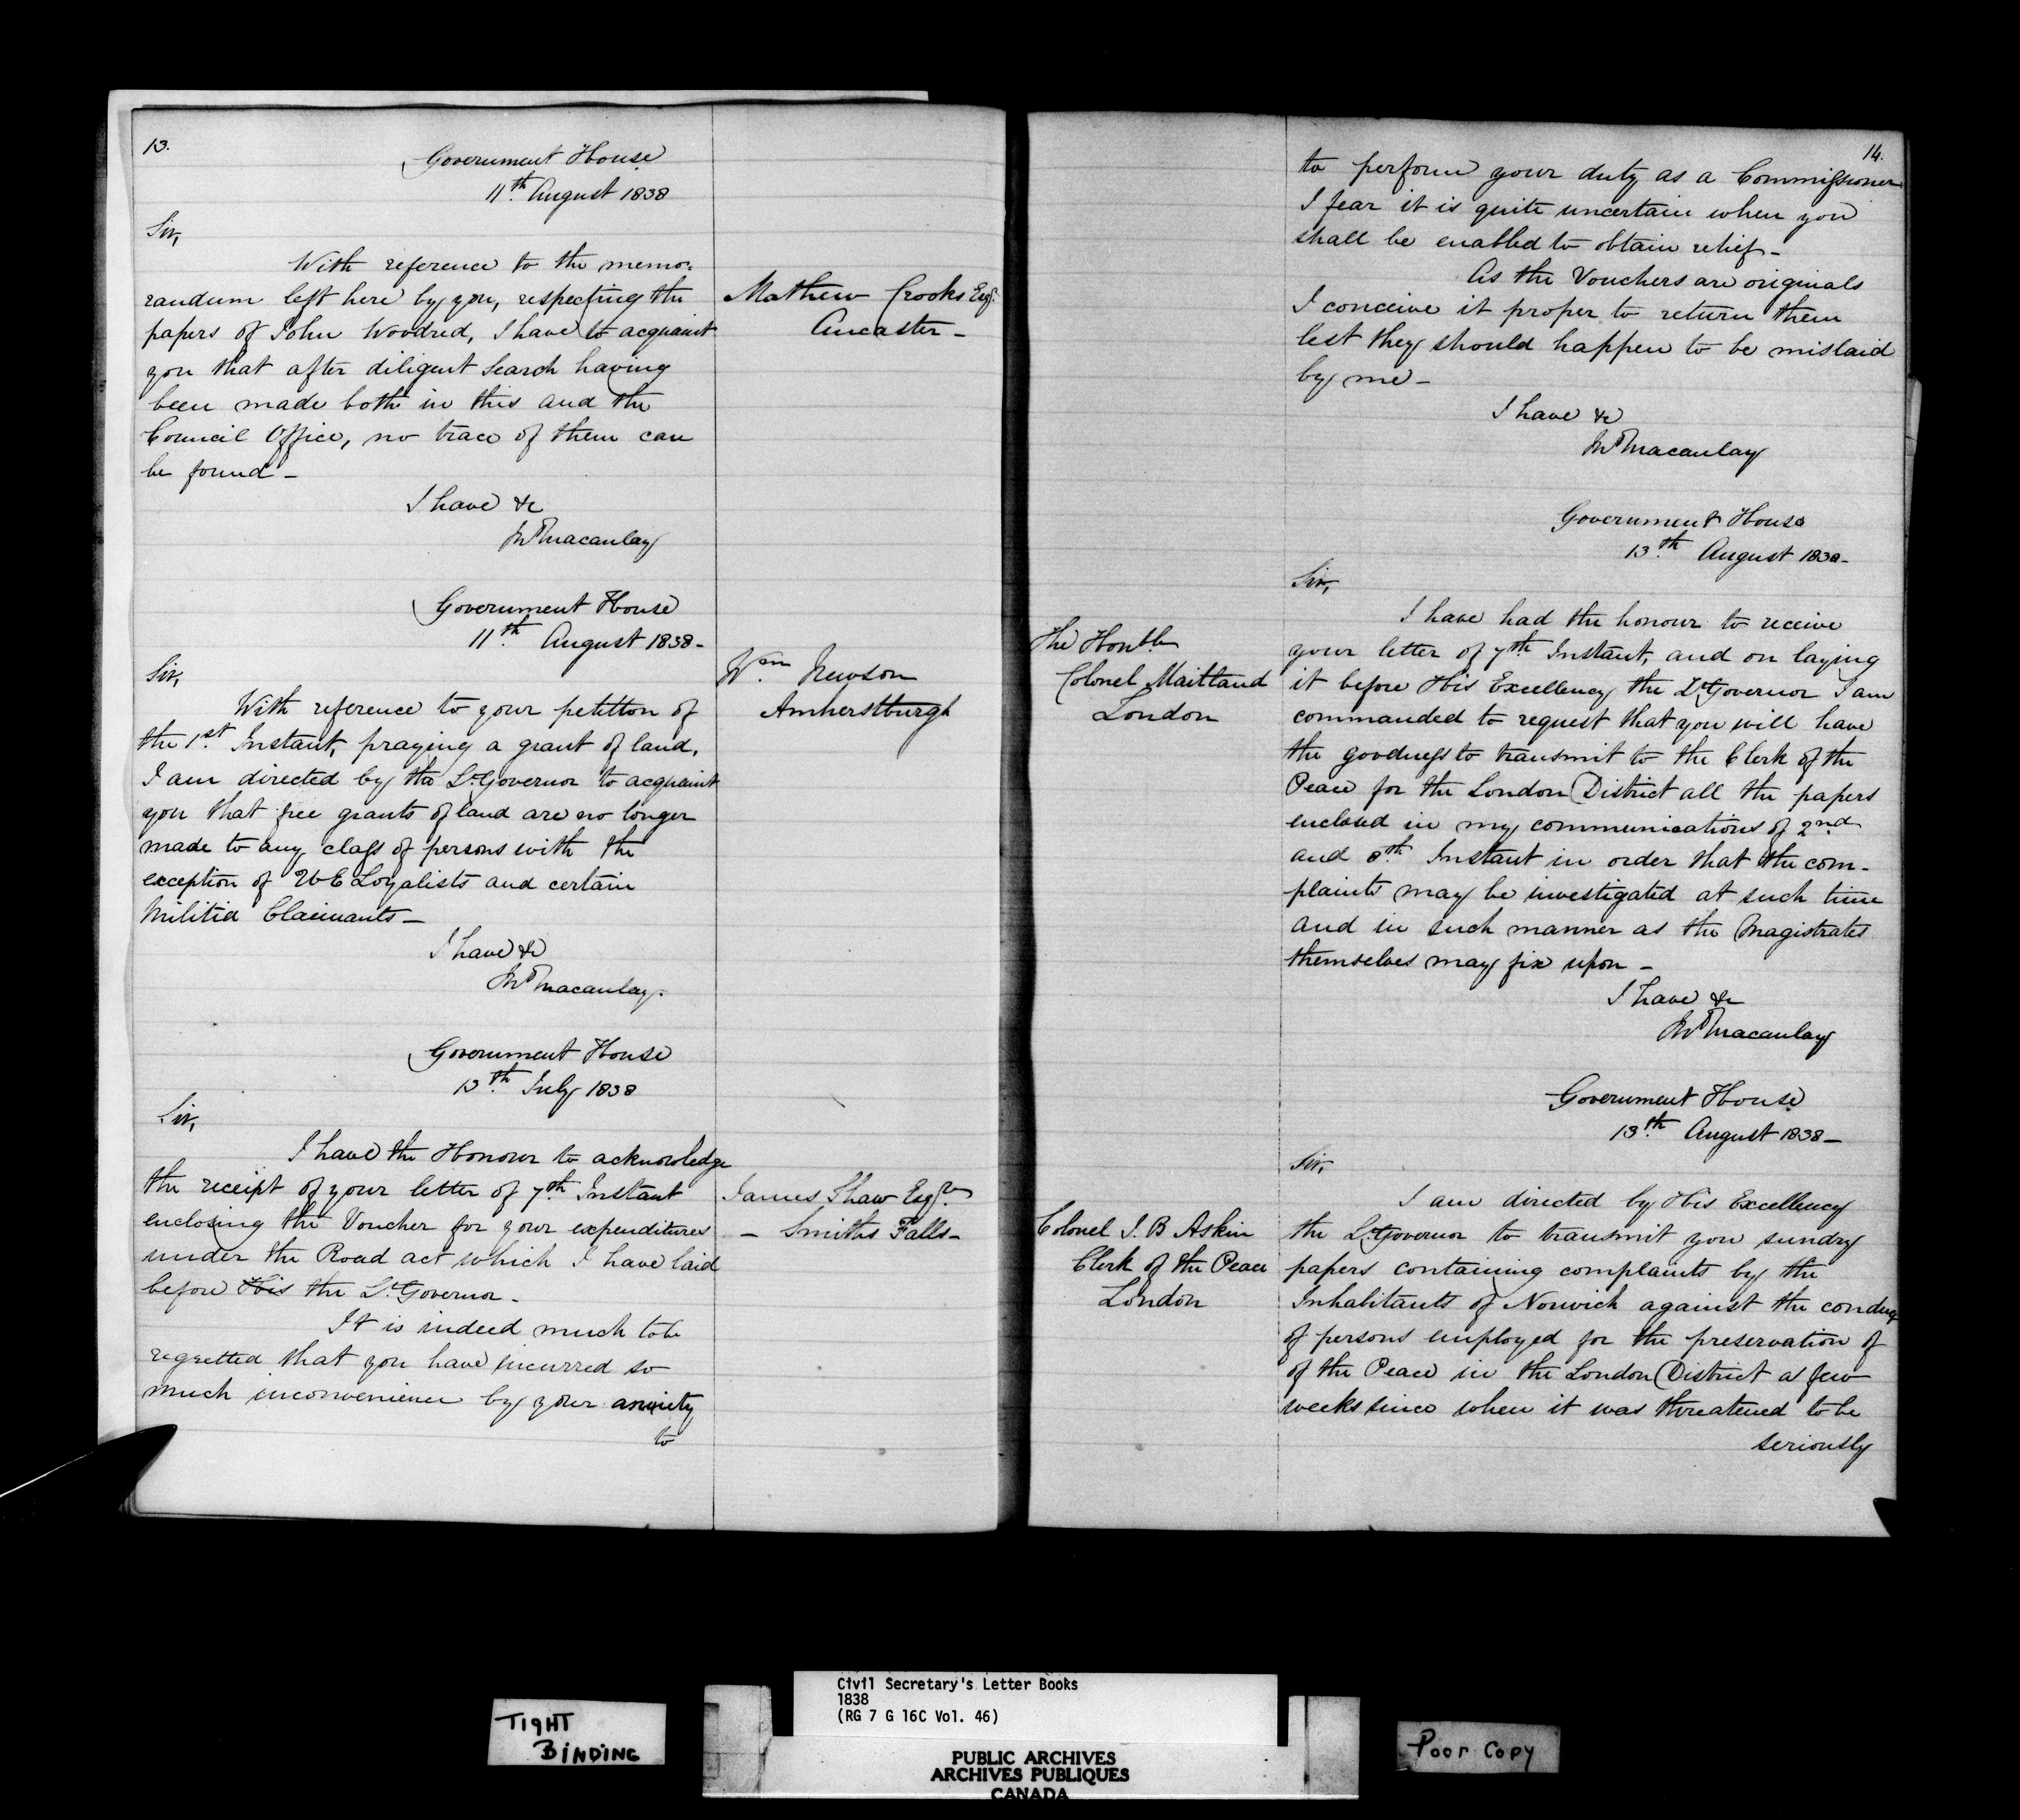 13.
Government House
11th. August 1838
Sir,
With reference to the memo-
randum left here by you, respecting the
papers of John Woodred, I have to acquaint
you that after diligent Search having
been made both in this and the
Council Office, no trace of them can
be found -
I have &c
Jno Macaulay
Mathew Crooks Esqr.
Ancaster -
Government House
11th. August 1838 -
Sir,
With reference to your petition of
the 1st. Instant, praying a grant of land,
I am directed by the Lt Governor to acquaint
you that free grants of land are no longer
made to any class of persons with the
exception of U E Loyalists and certain
Militia Claimants -
I have &c
Jno Macaulay.
Wm Newson
Amherstburgh
Government House
13th. July 1838
Sir,
I have the Honour to acknowledge
the receipt of your letter of 7th. Instant
enclosing the Voucher for your expenditures
under the Road act which I have laid
before His the Lt. Governor -
It is indeed much to be
regretted that you have incurred so
much inconvenience by your anxiety
to
James Shaw Esqre
- Smiths Falls -
14.
to perform your duty as a Commissioner
I fear it is quite uncertain when you
shall be enabled to obtain relief -
As the Vouchers are originals
I conceive it proper to return them
lest they should happen to be mislaid
by me -
I have &c
Jno Macaulay
Government House
13th. August 1838 -
Sir,
I have had the honour to receive
your letter of 7th. Instant, and on laying
it before His Excellency the Lt Governor I am
commanded to request that you will have
the goodness to transmit to the Clerk of the
Peace for the London District all the papers
enclosed in my communications of 2nd
and 8th. Instant in order that the com-
plaints may be investigated at such time
and in such manner as the Magistrates
themselves may fix upon -
I have &c
Jno Macaulay
The Honble
Colonel Maitland
London
Government House
13th. August 1838 -
Sir,
I am directed by His Excellency
the Lt Governor to transmit you sundry
papers containing complaints by the
Inhabitants of Norwich against the conduct
of persons employed for the preservation of
of the Peace in the London District a few
weeks since when it was threatened to be
seriously
Colonel J. B Askin
Clerk of the Peace
London
TIGHT
BINDING
Civil Secretary's Letter Books
1838
(RG 7 G 16C Vol. 46)
PUBLIC ARCHIVES
ARCHIVES PUBLIQUES
CANADA
Poor Copy